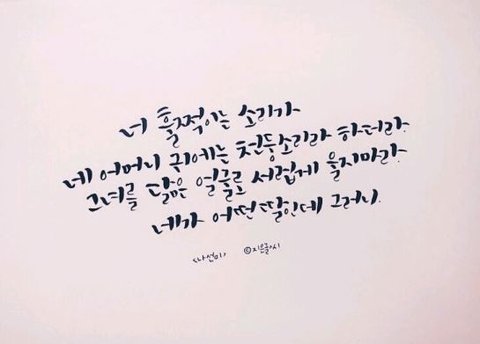 너 훌쩍이는 소리가
네 어머니 귀에는 천둥소리라 하더라.
그녀를 닮은 얼굴로 서럽게 울지마라.
네가 어떤 딸인데 그러니.
<나선미> ©지은글.시